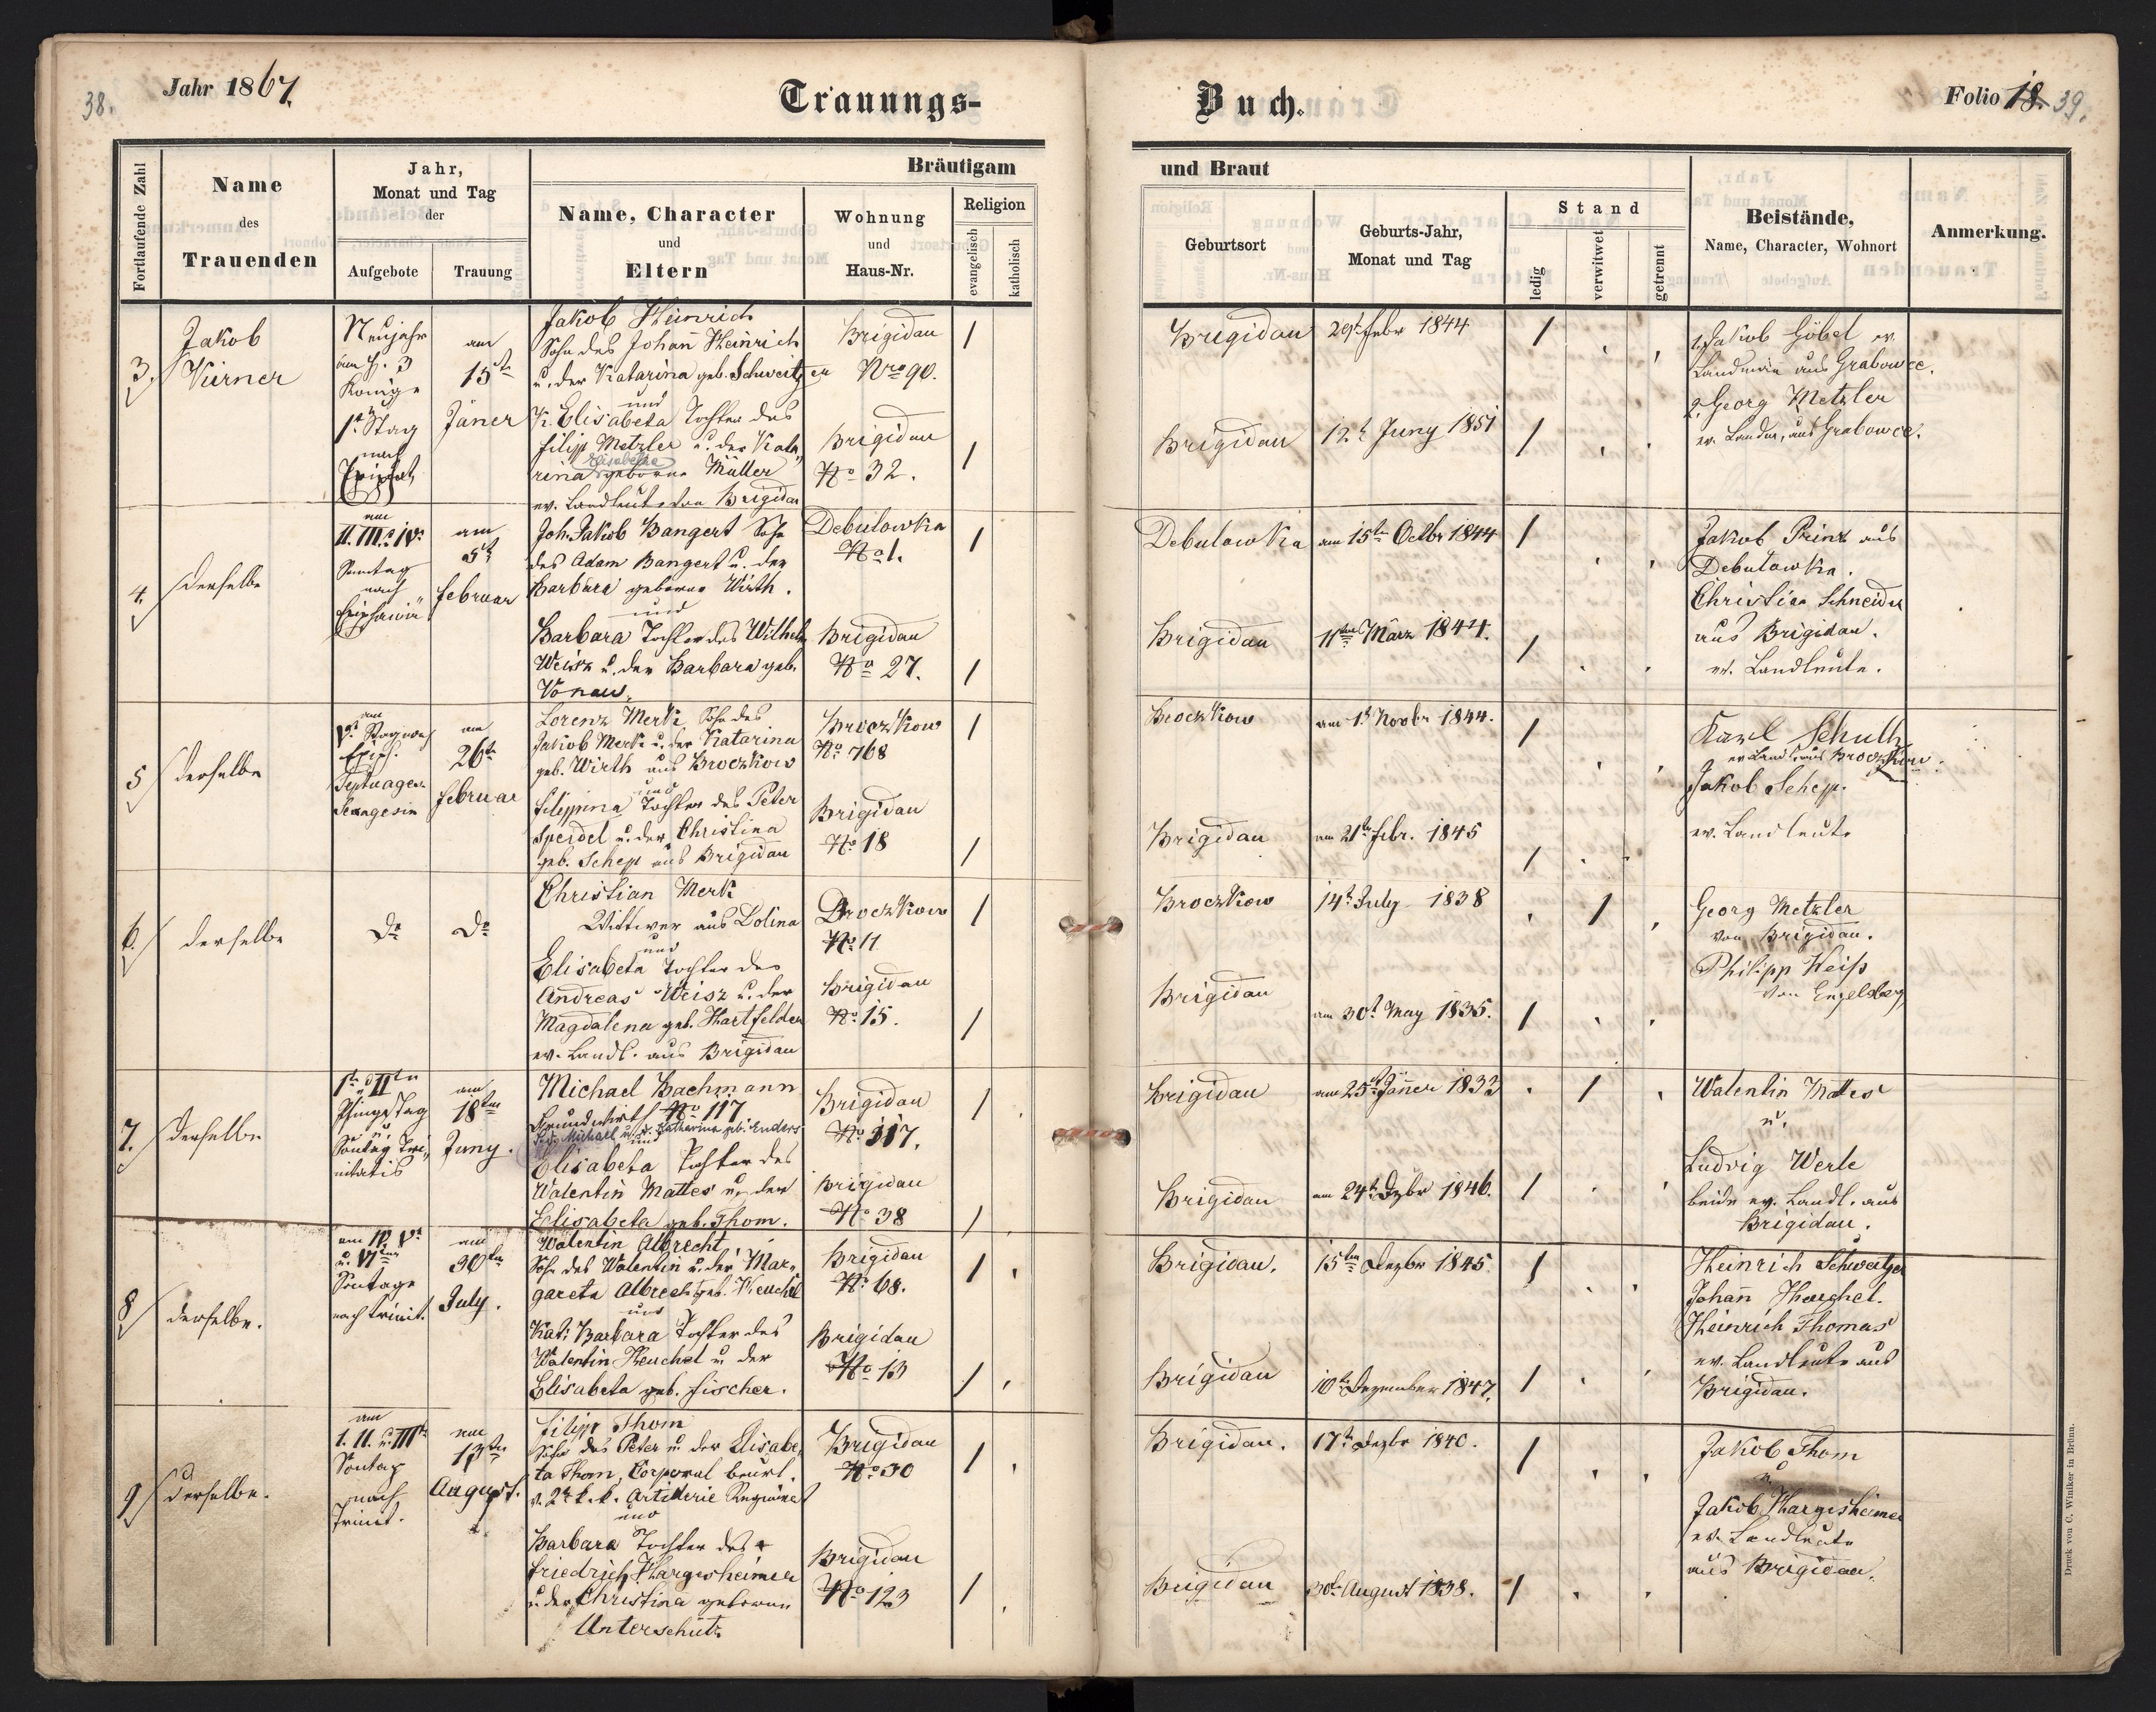 38.
Jahr 1867.
Trauungs-
Buch.
Folio 18. 39.
Fortlaufende Zahl
Name
des
Trauenden
Jahr,
Monat und Tag
der
Aufgebote
Trauung
Bräutigam
Name, Character
und
Eltern
Wohnung
und
Haus-Nr.
Religion
evangelisch
katholisch
und Braut
Geburtsort
Geburts-Jahr,
Monat und Tag
Stand
ledig
verwitwet
getrennt
Beistände,
Name, Character, Wohnort
Anmerkung.
3.
Jakob
Kürner
Neujahr
am H. 3
Könige
1st Stag
nach
Epiphat
am
15t
Jäner
Jakob Heinrich
Sohn des Johan̄ Heinrich
u. der Katarina geb. Schweitzer
und
K. Elisabeta Tochter des
Filipp Metzler u. der Kata„
Elisabetha
rina geborne Müller
ev. Landleute von Brigidau
Brigidau
Nro 90.
Brigidau
No 32.
Brigidau
29t Febr 1844
Brigidau
12t Juny 1851
1. Jakob Göbel ev.
Landman aus Grabowce.
2. Georg Metzler
ev. Landm, aus Grabowce.
4.
derselbe
am
II. III. u. IV.
Sonntag
nach
Epiphania
am
5t
Februar
Joh. Jakob Bangert Sohn
des Adam Bangert u. der
Barbara geborne Wirth.
und
Barbara Tochter des Wilhelm
Weisz u. der Barbara geb.
Vonau.
Debulowka
No 1.
Brigidau
No 27.
Debulowka
am 15t Octbr 1844
Brigidau
11ten März 1844.
Jakob Prinz aus
Debulowka.
Christian Schneider
aus Brigidau.
ev. Landleute.
5
derselbe
am
V. Stag nach
Epiph.
Septuages.
Sexagesin
am
26t
Februar
Lorenz Merk Sohn des
Jakob Merk u. der Katarina
geb. Wirth aus Broczkow
und
Filippina Tochter des Peter
Speidel u. der Christina
geb. Schep aus Brigidau
Broczkow
No 768
Brigidau
No 18
Broczkow
am 1t Novbr 1844.
Brigidau
am 21t Febr. 1845
Karl Schulh
ev. Land. aus Broczkow.
Jakob Schep.
ev. Landleute
6.
derselbe
Do
Do
Christian Merk
Wittwer aus Dolina
und
Elisabeta Tochter des
Andreas Weisz u. der
Magdalena geb. Hartfelder
ev. Landl. aus Brigidau
Broczkow
No 11
Brigidau
No 15.
Broczkow
14t July 1838
Brigidau
am 30t May 1835.
Georg Metzler
von Brigidau.
Philipp Weiss
von Engelsberg
7.
derselbe
1t u. IIten
Pfingstag
u.
Sontag Tri„
nitatis
am
18ten
Juny.
Michael Bachmann
Grundwirth No 117
Michael u. d. Katharina geb. Enders
und
Elisabeta Tochter des
Walentin Mattes u. der
Elisabeta geb. Thom.
Brigidau
No 117.
Brigidau
No 38
Brigidau
am 25t Jäner 1832
Brigidau
am 24t Dzbr 1846.
Walentin Mattes
u.
Ludvig Werle
beide ev. Landl. aus
Brigidau.
8
derselbe.
am IV. V.
u. VIten
Sontage
nach Trinit.
am
30ten
July.
Walentin Albrecht
Sohn des Walentin u. der Mar„
gareta Albrecht geb. Heuchel
und
Kat. Barbara Tochter des
Walentin Heuchel u. der
Elisabeta geb. Fischer.
Brigidau
No 68.
Brigidau
No 13
Brigidau.
15ten Dezbr 1845.
Brigidau
10t Dezember 1847.
Heinrich Schweitzer
Johan̄ Heuchel.
Heinrich Thomas
ev. Landleute aus
Brigidau.
9
derselbe.
am
I. II. u. III
Sontag
nach
Trinit.
am
13ten
August.
Filipp Thom
Sohn des Peter u. der Elisabe„
ta Thom, Corporal beurl.
v. 2t k. k. Artillerie Regiment
und
Barbara Tochter des
Friedrich Hargesheimer
u. der Christina geborne
Unterschütz
Brigidau
No 30
Brigidau
No 123
Brigidau.
17t Dezbr 1840.
Brigidau
30t August 1838.
Jakob Thom
u.
Jakob Hargesheimer
ev. Landleute
aus Brigidau.
Druck von C. Winiker in Brünn.